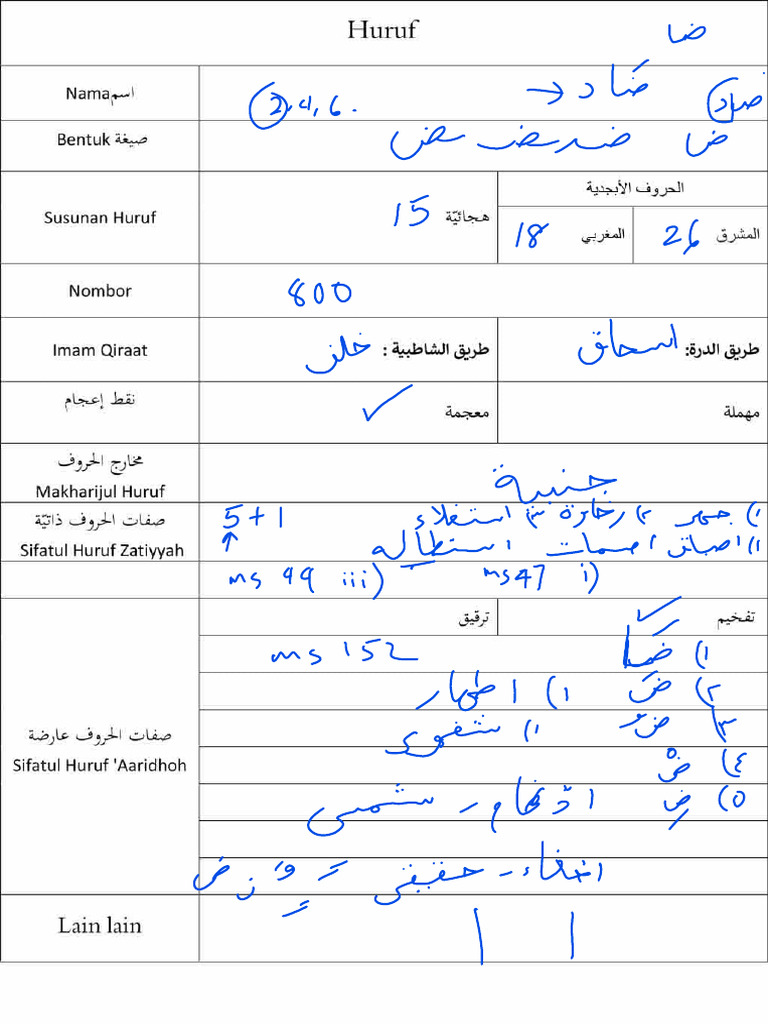 Huruf ضا
Nama اسم 2, 4, 6. ← ضَاد ضاد
Bentuk صيغة ض ضـ ـضـ ـض
Susunan Huruf 15 هجائيّة الحروف الأبجدية
18 المغربي 26 المشرق
Nombor 800
Imam Qiraat طريق الشاطبية : خلف طريق الدرة: اسحاق
نقط إعجام معجمة ✓ مهملة
مخارج الحروف
Makharijul Huruf جنبية
صفات الحروف ذاتيّة 5+1 ١) جهر ٢) رخاوة ٣) استعلاء
Sifatul Huruf Zatiyyah ↑ اطباق اصمات استطالة
ms 99 iii) ms 47 i)
ترقيق تفخيم ✓
ms 152 ١) ضَا
٢) ضَ ١) اظهار
صفات الحروف عارضة ٣) ضُ شفوي
Sifatul Huruf 'Aaridhoh ٤) ضْ
٥) ضِ ادغام - شمسي
اخفاء - حقيقي ن ض
Lain lain